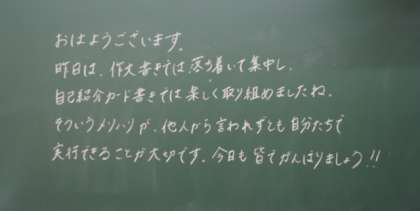 おはようございます。
昨日は、作文書きでは落ち着いて集中し、
自己紹介カード書きでは楽しく取り組めましたね。
そういうメリハリが、他人から言われずとも自分たちで
実行できることが大切です。今日も皆でがんばりましょう!!